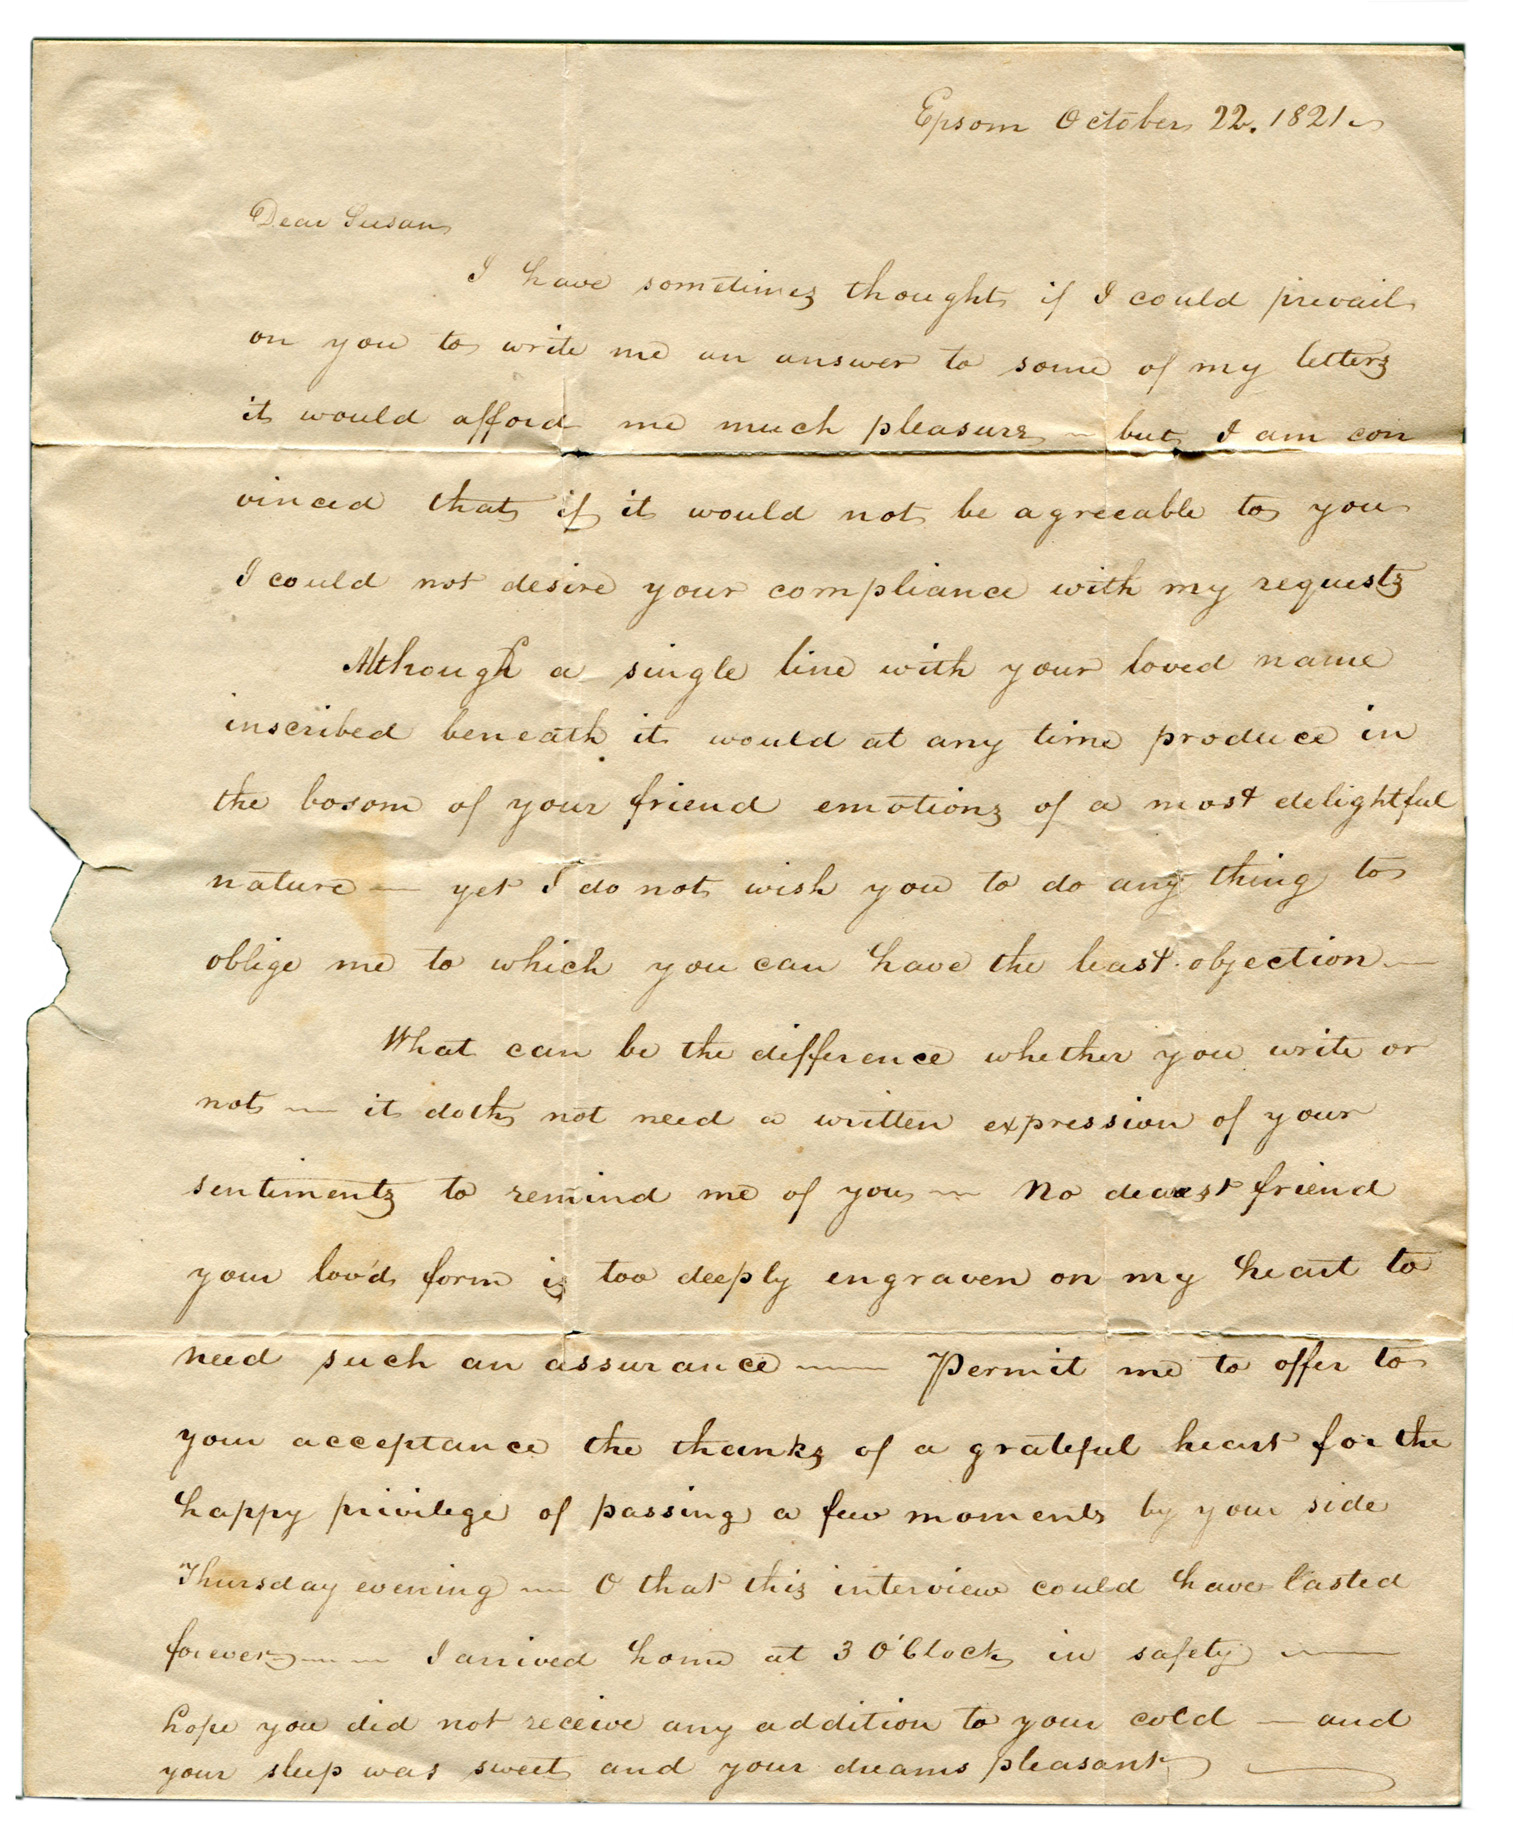 Epsom October 22. 1821
Dear Susan
I have sometimes thought if I could prevail
on you to write me an answer to some of my letters
it would afford me much pleasure – but I am con
vinced that if it would not be agreeable to you
I could not desire your compliance with my requests
Although a single line with your loved name
inscribed beneath it would at any time produce in
the bosom of your friend emotions of a most delightful
nature — yet I do not wish you to do any thing to
oblige me to which you can have the least objection —
What can be the difference whether you write or
not — it doth not need a written expression of your
sentiments to remind me of you — No dearest friend
your lov'd form is too deeply engraven on my heart to
need such an assurance —— Permit me to offer to
your acceptance the thanks of a grateful heart for the
happy privilege of passing a few moments by your side
Thursday evening — O that this interview could have lasted
forever —— I arrived home at 3 O'Clock in safety ——
hope you did not receive any addition to your cold — and
your sleep was sweet and your dreams pleasant ——